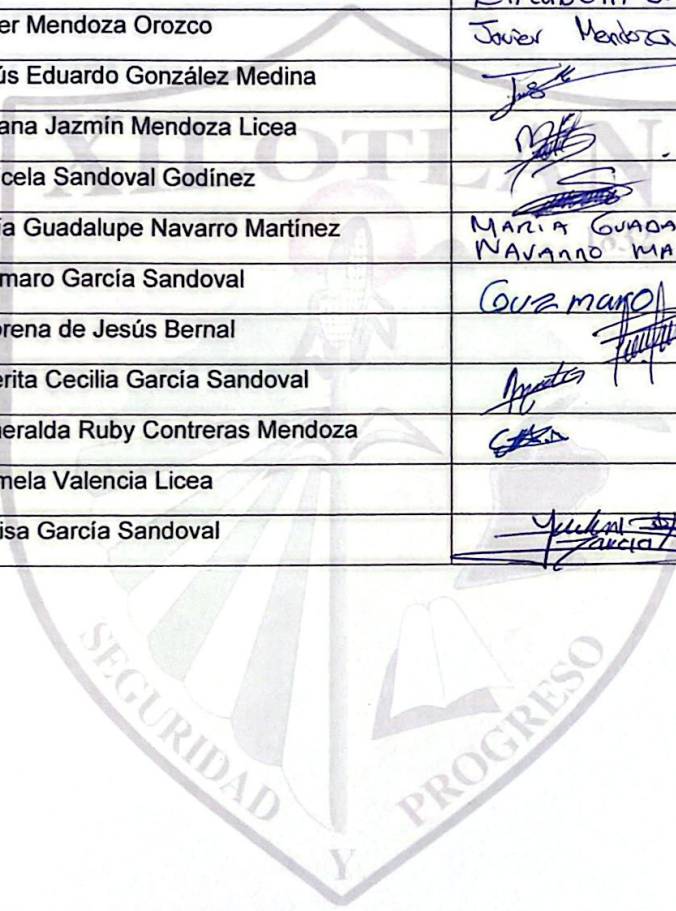 er Mendoza Orozco
Javier Mendoza
ús Eduardo González Medina
ana Jazmín Mendoza Licea
cela Sandoval Godínez
ía Guadalupe Navarro Martínez
MARIA GUADA
NAVARRO MA
maro García Sandoval
Guzmaro
orena de Jesús Bernal
erita Cecilia García Sandoval
neralda Ruby Contreras Mendoza
mela Valencia Licea
isa García Sandoval
García
XILOTLÁN
SEGURIDAD
Y
PROGRESO